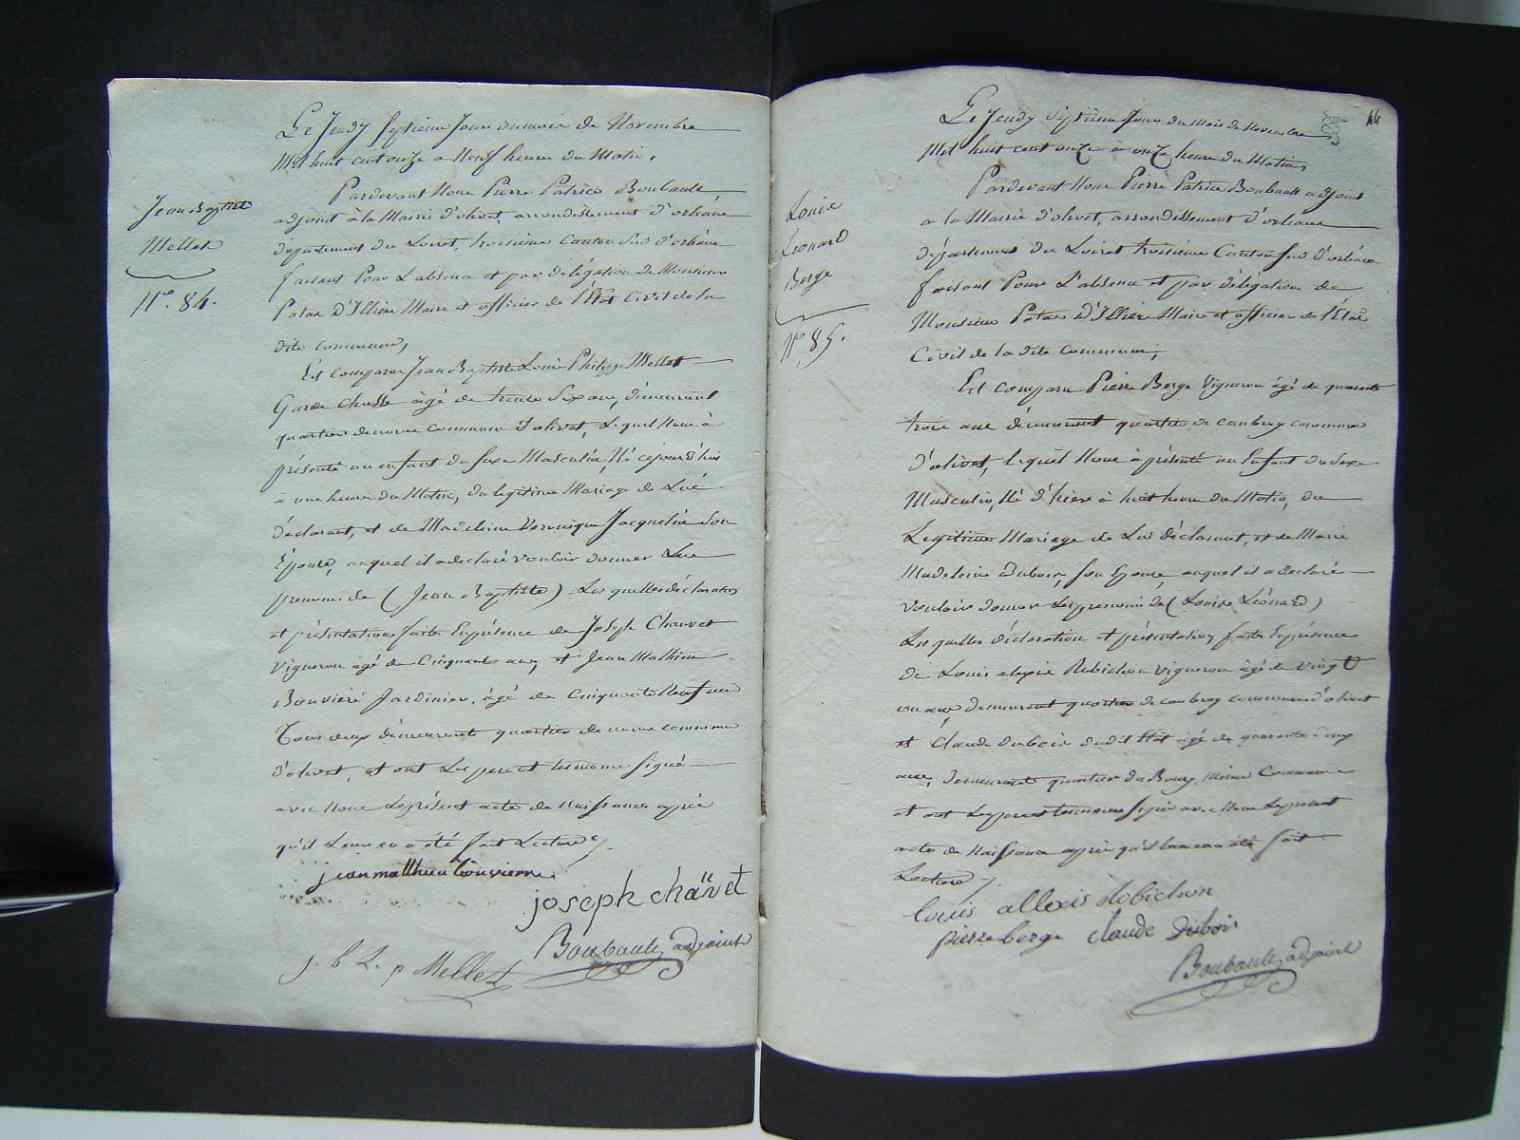 Le Jeudy septieme Jour du mois de Novembre
Mil huit cent onze a Neuf heure du Matin.
Pardevant Nous Pierre Patrice Boubault
adjoint à la Mairie d'olivet, arrondissement d'orléans
departement du Loiret, troisieme Canton Sud d'orléans
faisant Pour L'absence et par délégation de Monsieur
Patas D'Illiers Maire et officier de l'état Civil de la
dite commune,
Jean Baptiste
Mellet
N°. 84.
Est comparu Jean Baptiste Louis Philippe Mellet
Garde chasse âgé de trente Six ans, demeurant
quartier de commune d'olivet, Lequel Nous à
présenté un enfant du sexe Masculin, Né cejourd'hui
à une heure du Matin, du legitime Mariage de Lui
déclarant, et de Madeleine Veronique Jacqueline Son
Épouse, auquel il a declaré vouloir donner Le
prenom de (Jean Baptiste) Les quelles déclaration
et présentation faites En présence de Joseph Chauvet
Vigneron âgé de Cinquante ans, et Jean Mathieu
Bouviere Jardinier, âgé de cinquante Neuf ans
Tous deux demeurants quartier de commune
d'olivet, et ont Les pere et temoins signé
avec Nous Le présent acte de Naissance après
qu'il Leur en a été fait Lecture.
jean matthieu bouvierre
joseph chauvet
j. b L. p Mellet
Boubault adjoint
44
Le Jeudy Septieme Jour du Mois de Novembre
Mil huit cent onze à onze heure du Matin
Pardevant Nous Pierre Patrice Boubault adjoint
a la Mairie d'olivet, arrondissement d'orléans
département du Loiret troisieme Canton Sud d'orléans
faisant Pour L'absence et par délégation de
Monsieur Patas D'Illiers Maire et officier de l'État
Civil de la dite Commune,
Louis
Léonard
Berge
N°. 85.
Est comparu Pierre Berge Vigneron âgé de quarante
trois ans demeurant quartier de caubray commune
d'olivet, Lequel Nous à présenté un Enfant du Sexe
Masculin, Né d'hier à huit heure du Matin, du
Legitime Mariage de Lui déclarant, et de Marie
Madeleine Dubois, son Epouse auquel il a declaré
vouloir donner Les prenoms de (Louis Léonard)
Les quelles déclaration et présentation faites En présence
de Louis alexis Robichon vigneron âgé de vingt
un ans demeurant quartier de caubray commune d'olivet
et Claude Dubois dudit Etat âgé de quarante cinq
ans, demeurant quartier du Bourg même Commune
et ont Les pere et temoins signé avec Nous Le présent
acte de Naissance après qu'il Leur en a été fait
Lecture
louis allexis Robichon
pierre berge claude dubois
Boubault adjoint